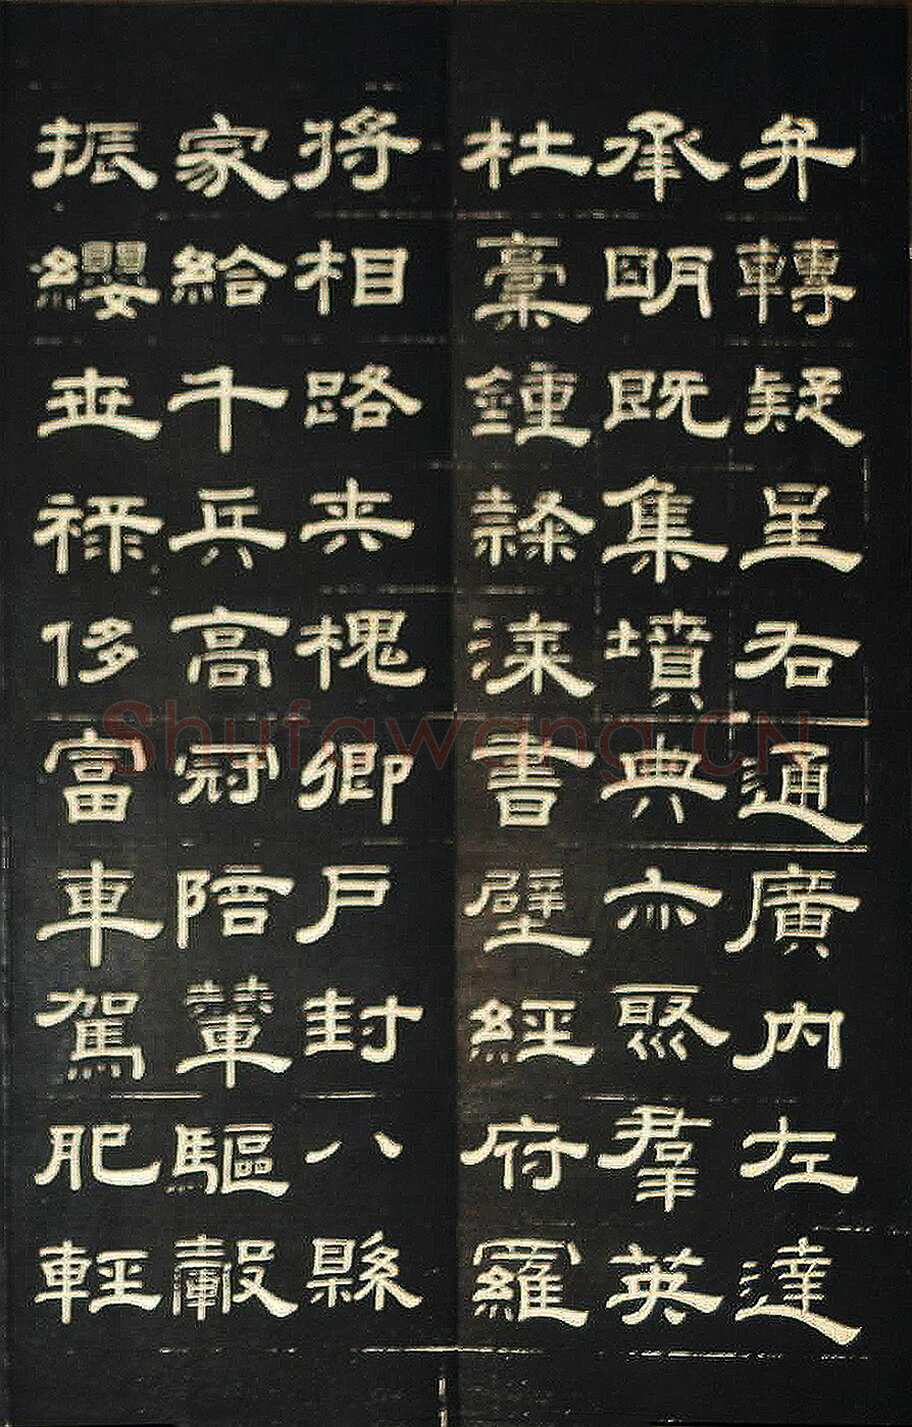 弁轉疑星右通廣內左達
承明既集墳典亦聚羣英
杜稾鍾隸漆書壁經府羅
將相路夾槐卿戶封八縣
家給千兵高冠陪輦驅轂
振纓世祿侈富車駕肥輕
Shufawang.CN